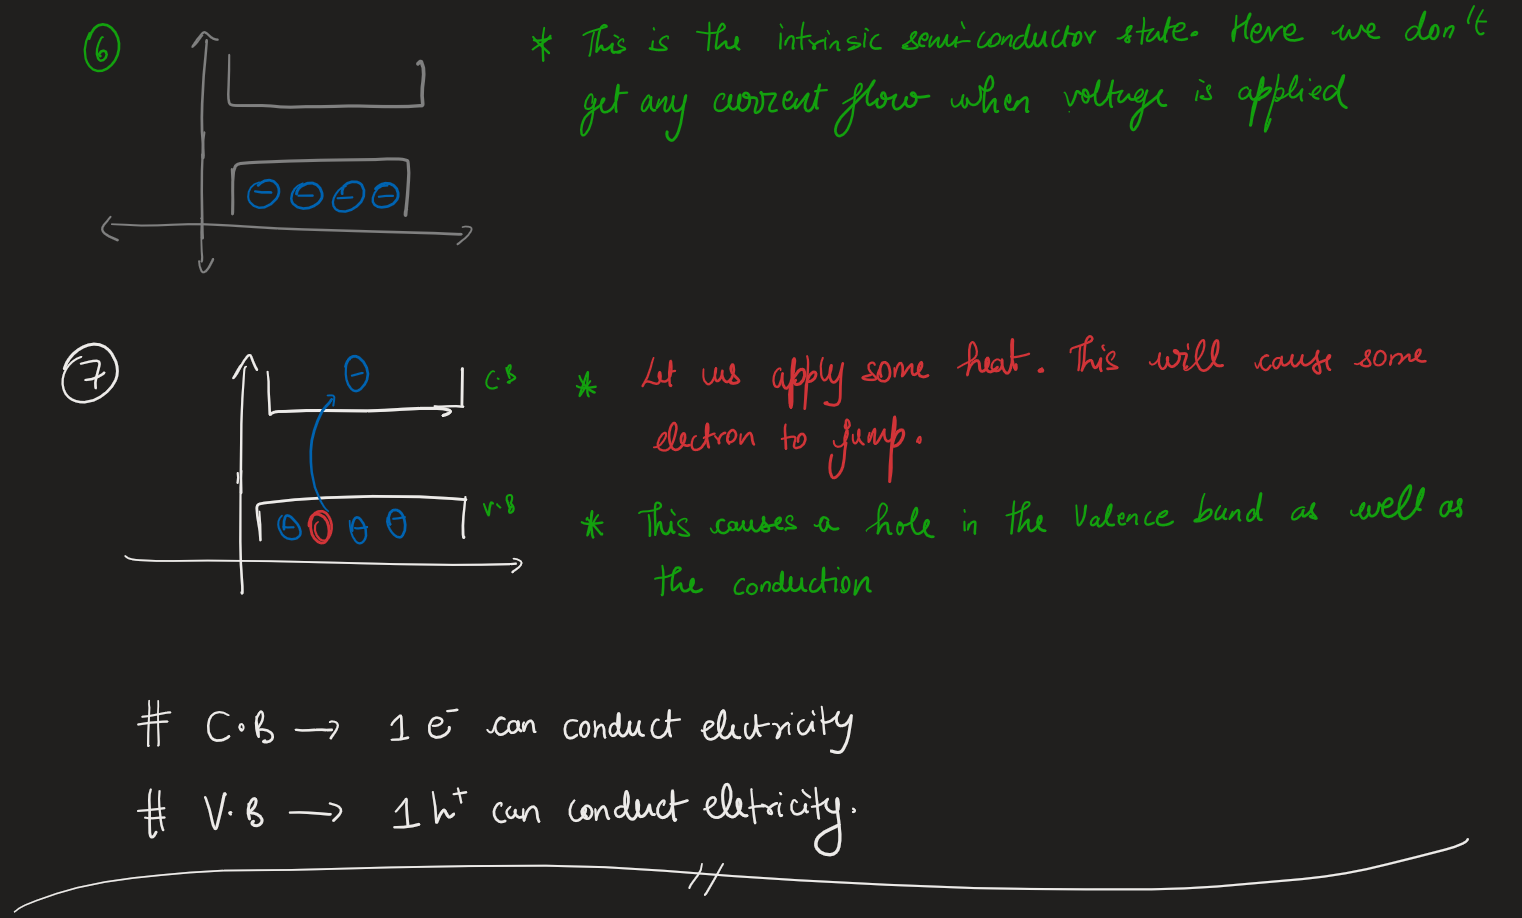 6
* This is the intrinsic semi-conductor state. Here we don't
get any current flow when voltage is applied
7
C.B
* Let us apply some heat. This will cause some
electron to jump.
V.B
* This causes a hole in the valence band as well as
the conduction
# C.B → 1 e⁻ can conduct electricity
# V.B → 1 h⁺ can conduct eletricity.